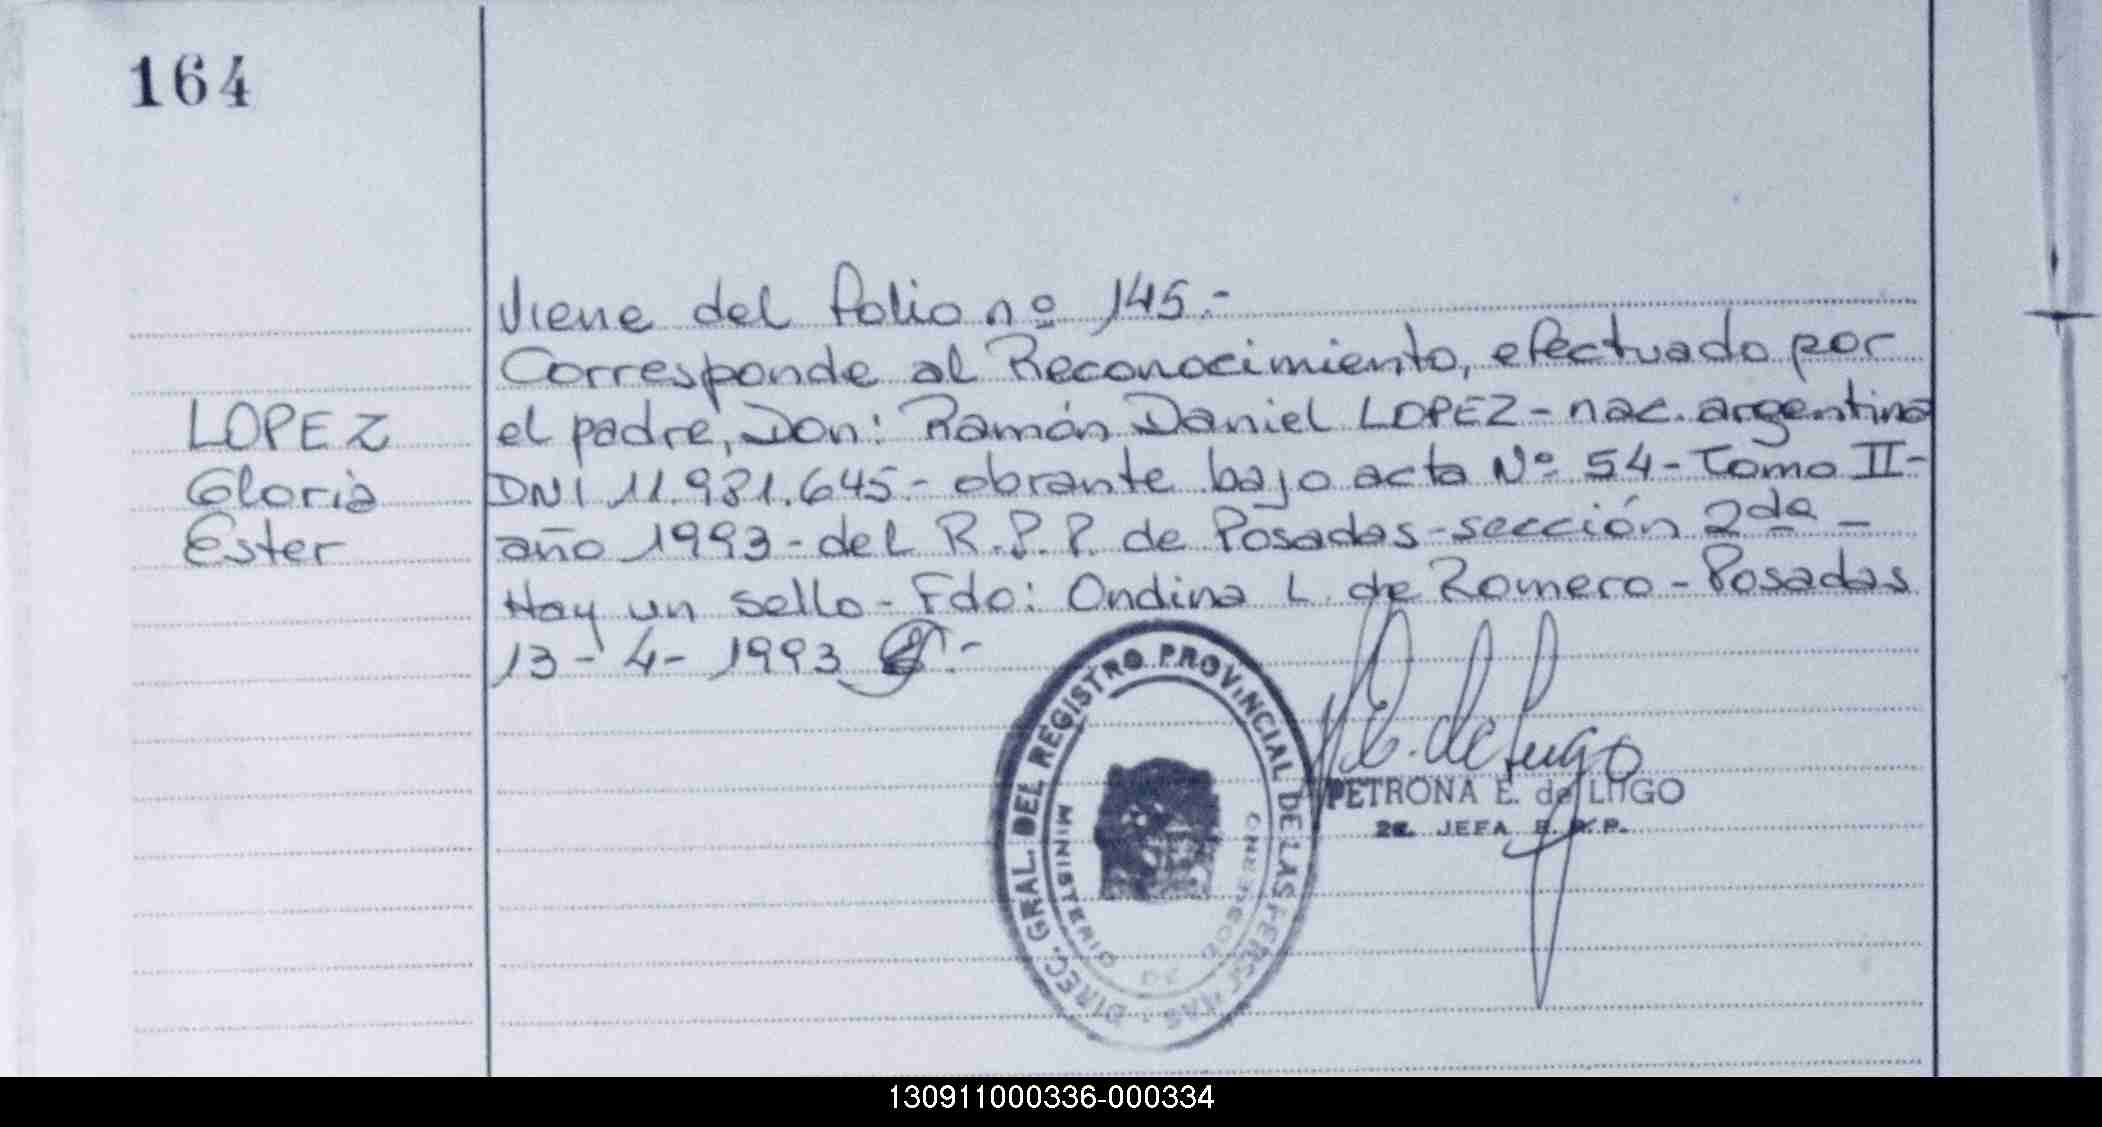 164
Viene del folio nº 145.-
Corresponde al Reconocimiento, efectuado por
LOPEZ el padre, Don: Ramón Daniel LOPEZ - nac. argentina
Gloria DNI 11.981.645.- obrante bajo acta Nº 54 - Tomo II -
Ester año 1993 - del R.P.P. de Posadas - sección 2da -
Hay un sello - Fdo: Ondina L. de Romero - Posadas
13 - 4 - 1993 .-
DIREC. GRAL. DEL REGISTRO PROVINCIAL DE LAS PERSONAS
MINISTERIO DE GOBIERNO
P.E. de Lugo
PETRONA E. de LUGO
2a. JEFA R.P.P.
130911000336-000334